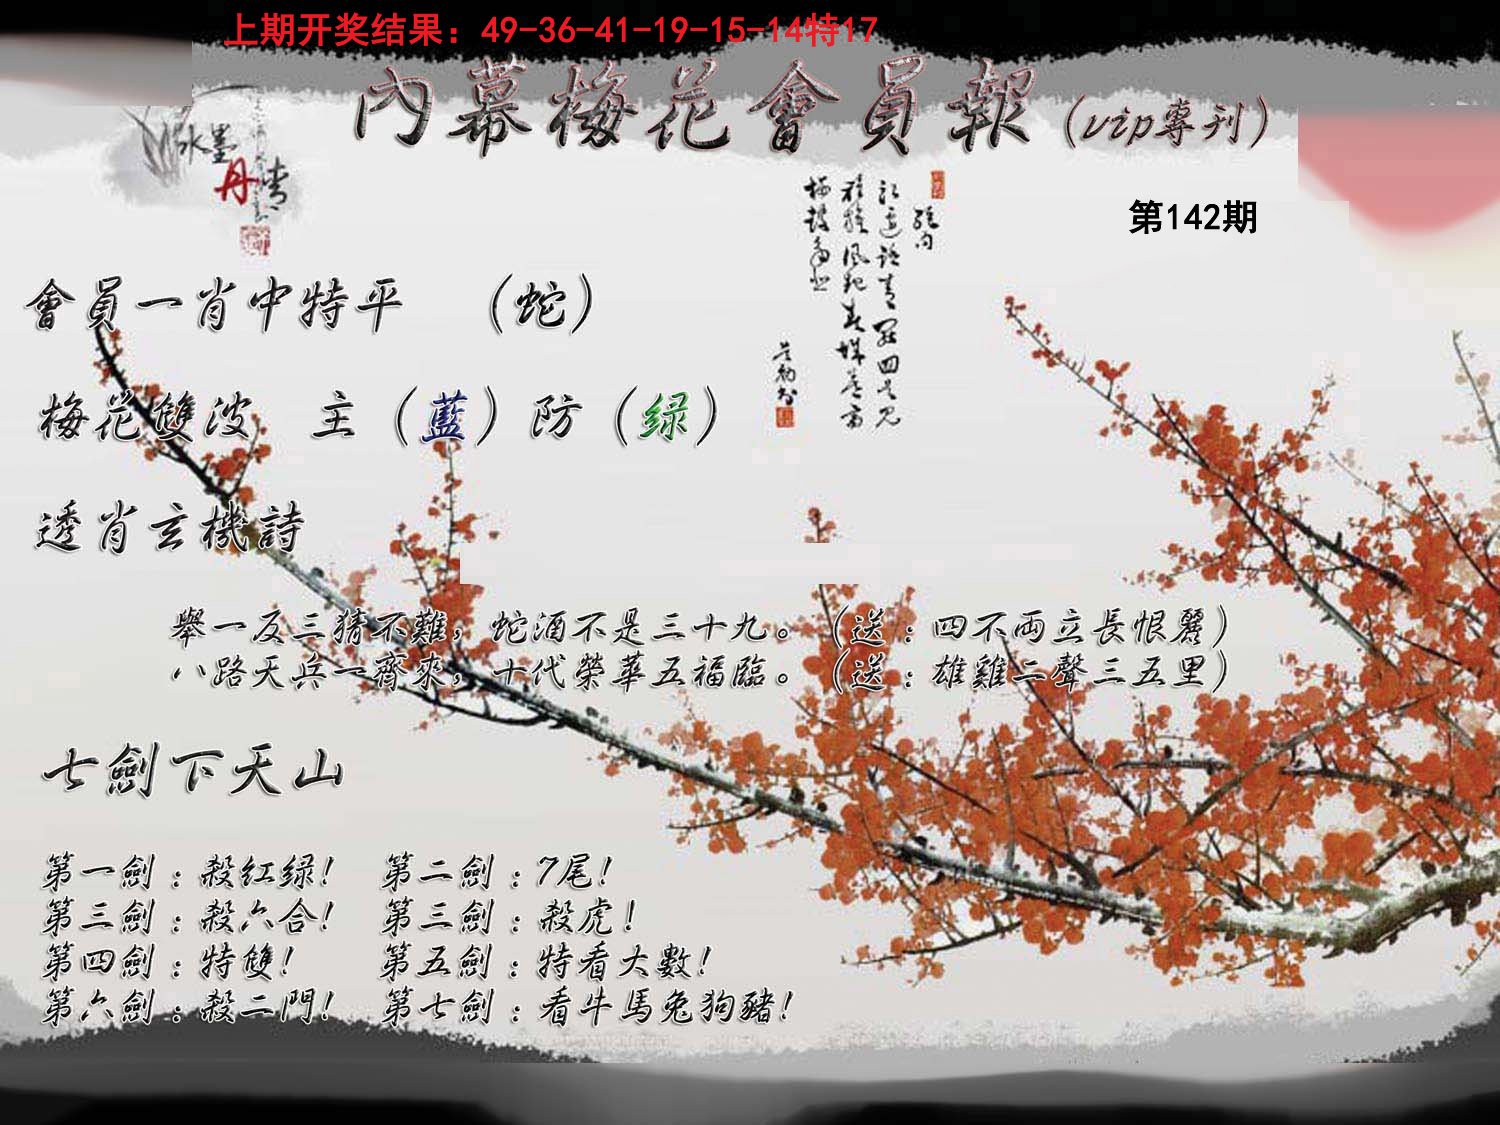 上期开奖结果：49-36-41-19-15-14特17
內幕梅花會員報(vip專刊)
水墨
丹青
第142期
會員一肖中特平 （蛇）
梅花雙波 主（藍）防（绿）
透肖玄機詩
舉一反三猜不難，蛇酒不是三十九。（送：四不両立長恨麗）
八路天兵一齊來，十代榮華五福臨。（送：雄雞二聲三五里）
七劍下天山
第一劍：殺红绿！ 第二劍：7尾！
第三劍：殺六合！ 第三劍：殺虎！
第四劍：特雙！ 第五劍：特看大數！
第六劍：殺二門！ 第七劍：看牛馬兔狗豬！